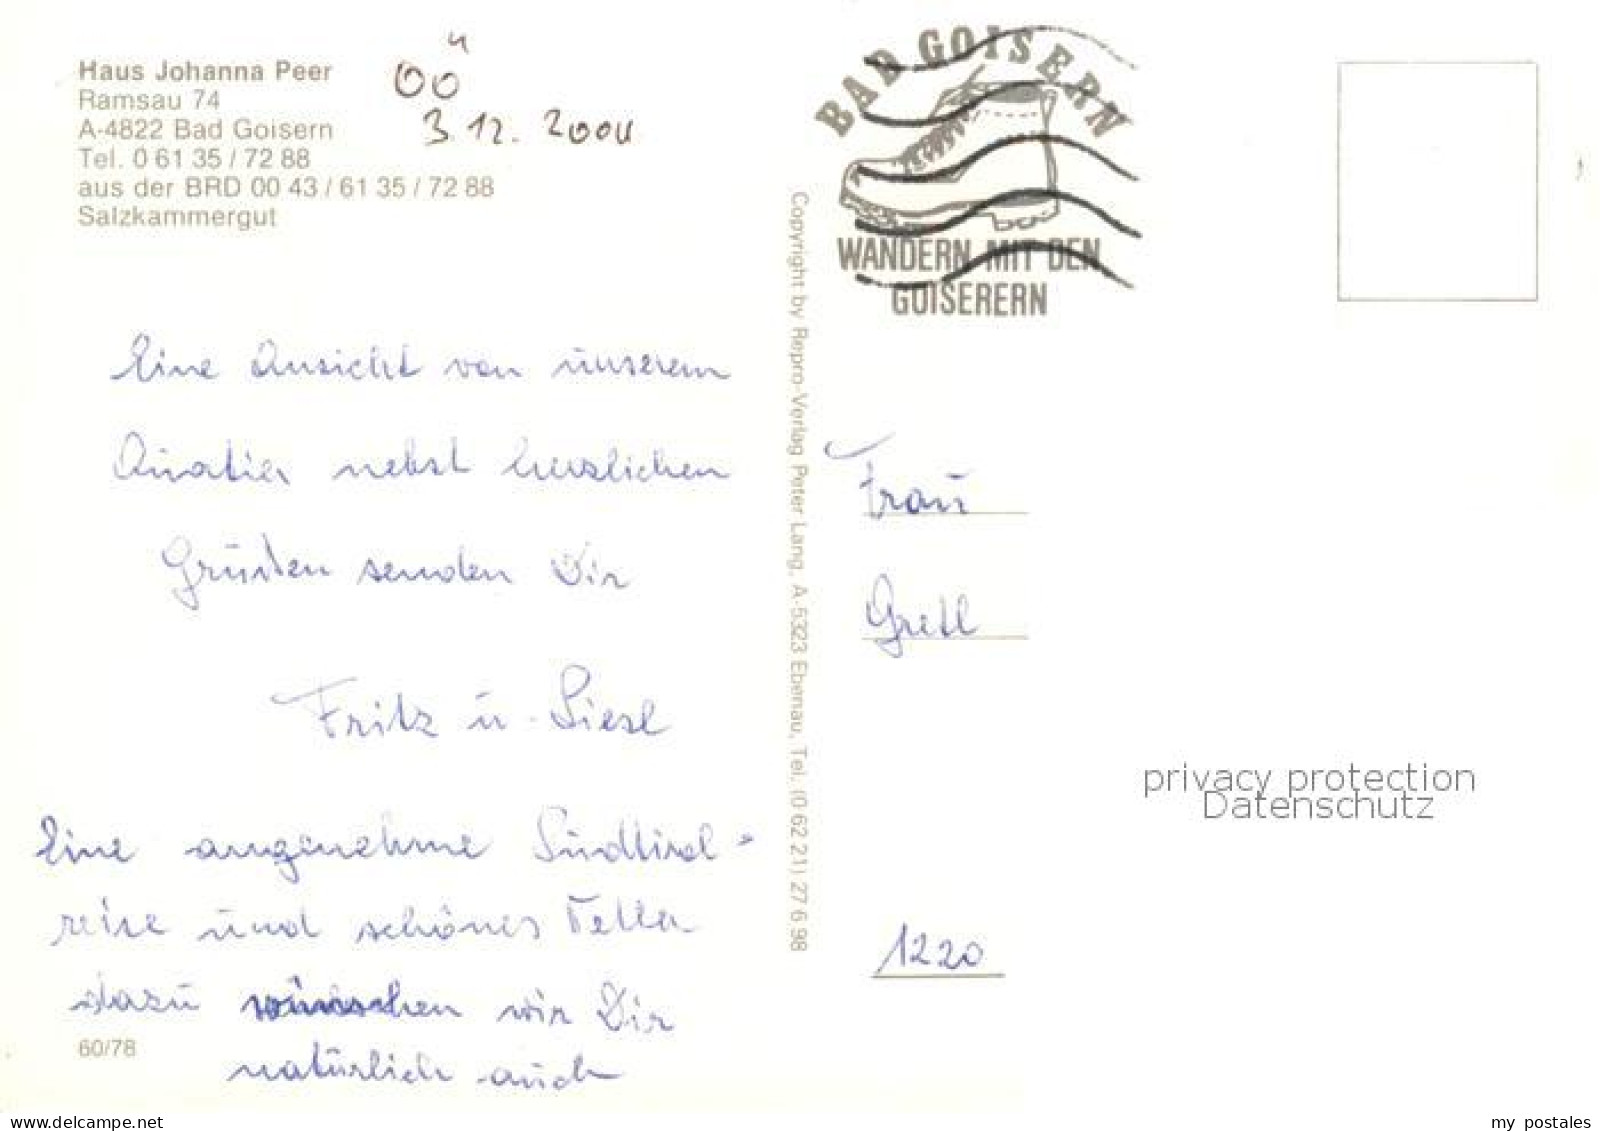 Haus Johanna Peer
Ramsau 74
A-4822 Bad Goisern
Tel. 0 61 35 / 72 88
aus der BRD 00 43 / 61 35 / 72 88
Salzkammergut
OÖ
3.12.2004
BAD GOISERN
WANDERN MIT DEN
GOISERERN
Eine Ansicht von unserem
Quatier nebst herzlichen
Grüßen senden Dir
Fritz u. Liesl
Eine angenehme Südtirol-
reise und schönes Wetter
dazu wünschen wir Dir
natürlich auch
60/78
Copyright by Repro-Verlag Peter Lang, A-5323 Ebenau, Tel. (0 62 21) 27 6 98
Frau
Gretl
1220
privacy protection
Datenschutz
my postales